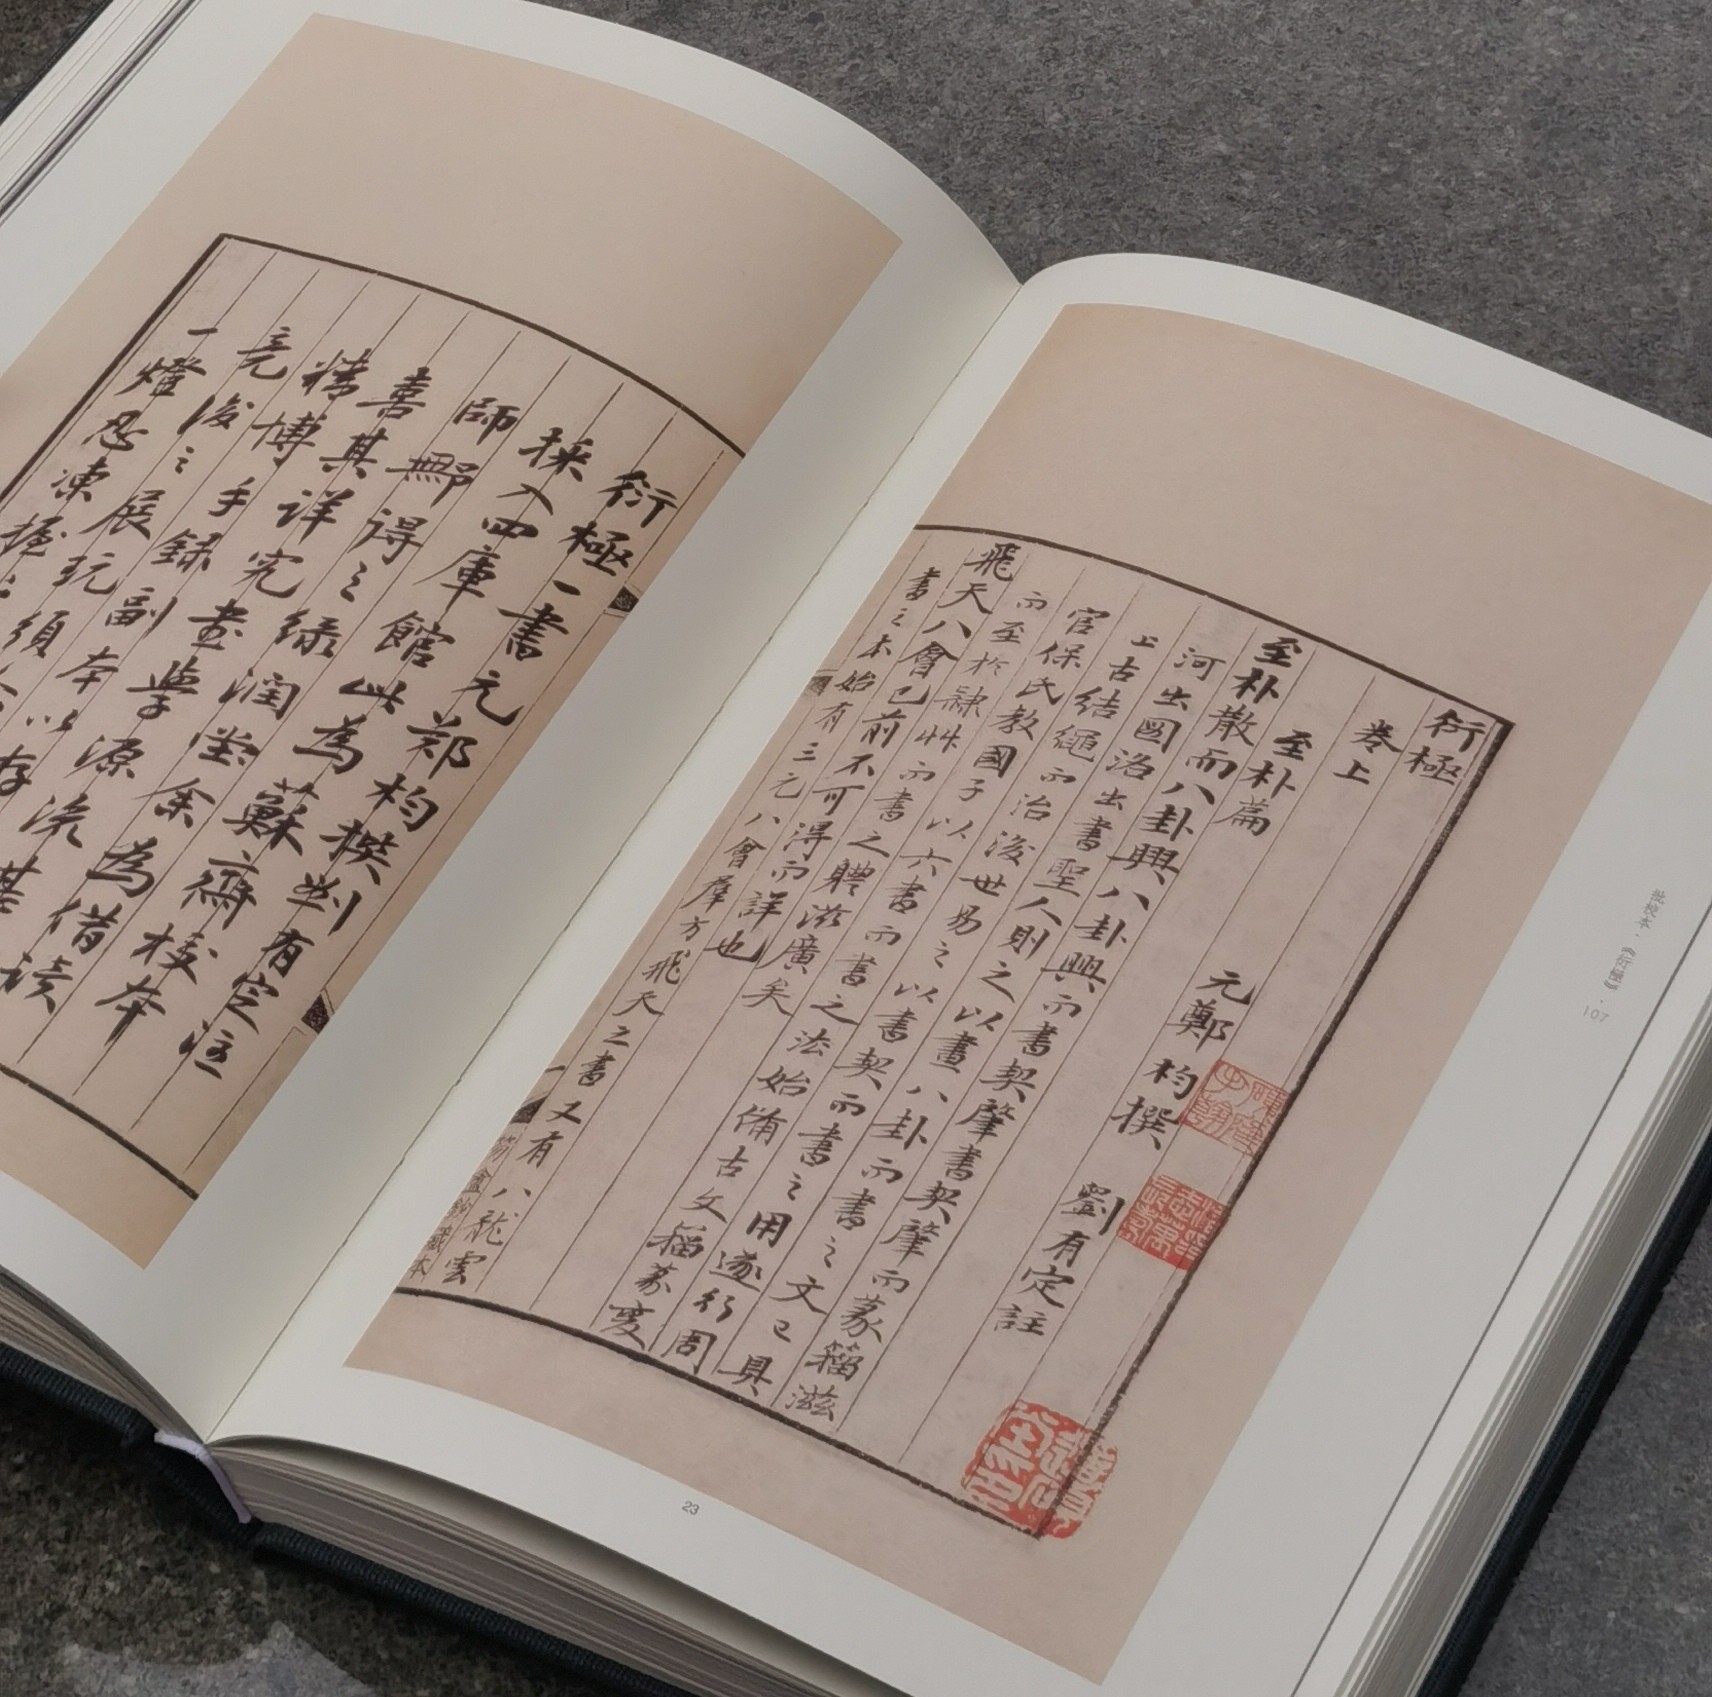 衍極一書元鄭杓撰劉有定注
採入四庫館此為蘇齋校本
得之緑潤堂余為借讀
喜其詳究書學源流甚
精博手録副本以存
竟後之展玩須
一燈忍凍握
衍極
卷上 元鄭杓撰 劉有定註
至朴篇
至朴散而八卦興八卦興而書契肇書契肇而篆籀滋
河出圖洛出書聖人則之以畫八卦而書之文已具
上古結繩而治後世易之以書契而書之用遂行周
官保氏教國子以六書而書之法始備古文籀篆變
而至於隸艸而書之體滋廣矣
飛天八會已前不可得而詳也
書之本始有三元八會羣方飛天之書又有八龍雲
一
笏盦鈔藏本
批校本·《衍極》·107
23